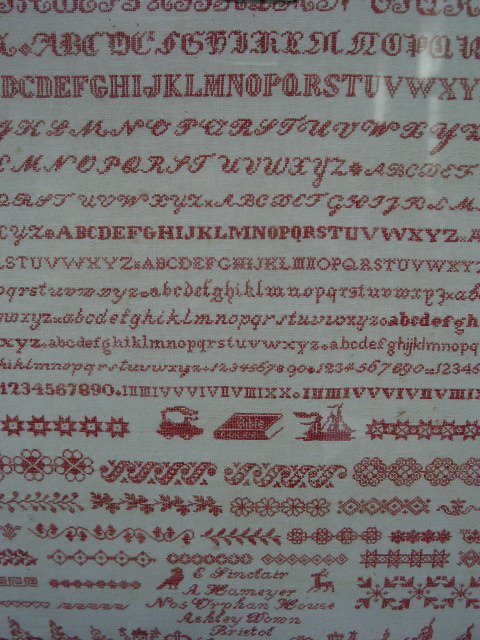 ABCDEFGHIKLMNOPQ
ABCDEFGHIJKLMNOPQRSTUVWXY
KLMNOPQRSTUVWXYZ
LMNOPQRSTUVWXYZ ABCDEF
QRSTUVWXYZ ABCDEFGHIJKLM
XYZ ABCDEFGHIJKLMNOPQRSTUVWXYZ
STUVWXYZ ABCDEFGHIJKLMNOPQRSTUVWXYZ
pqrstuvwxyz abcdefghiklmnopqrstuvwxyz abcd
wxyz abcdefghiklmnopqrstuvwxyz abcdefgh
xyz abcdefghiklmnopqrstuvwxyz abcdefghiklmnopq
hiklmnopqrstuvwxyz 1234567890 1234567890 12345
1234567890 I II III IV V VI VII VIII IX X I II III IV V VI VII VIII IX
E Sinclair
A Hameyer
No 3 Orphan House
Ashley Down
Bristol